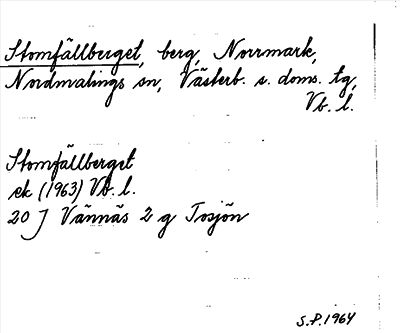 Stomfällberget, berg, Norrmark,
Nordmalings sn, Västerb. s. doms. tg,
Vb. l.
Stomfällberget
ek (1963) Vb. l.
20 J Vännäs 2 g Tosjön
S.P. 1964